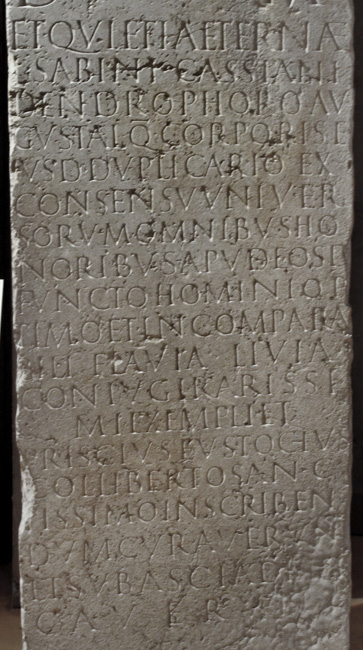 ET QVIETI AETERNAE
SABINI CASSIANI
DENDROPHORO AV
GVSTAL Q CORPORIS E
VSD DVPLICARIO EX
CONSENSV VNIVER
SORVM OMNIBVS HO
NORIBVS APVD EOS
FVNCTO HOMINI OP
TIMO ET INCOMPARA
FLAVIA LIVIA
CONIVGI KARISSI
MI EXEMPLI ET
PRISCIVS EVSTOCHVS
COLLIBERTO SAN C
ISSIMO INSCRIBEN
DVM CVRAVERVNT
ET SVB ASCIA D
CAVER